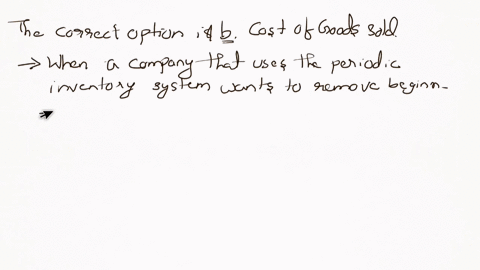 The correct option is b. Cost of Goods sold
→ When a company that uses the periodic
inventory system wants to remove beginn-